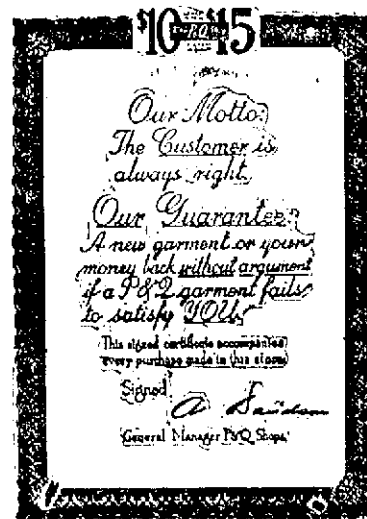 $10 P&Q $15
Our Motto:
The Customer is
always right.
Our Guarantee:
A new garment or your
money back without argument
if a P&Q garment fails
to satisfy YOU!
This signed certificate accompanies
every purchase made in this store
Signed
A
General Manager P&Q Shops.